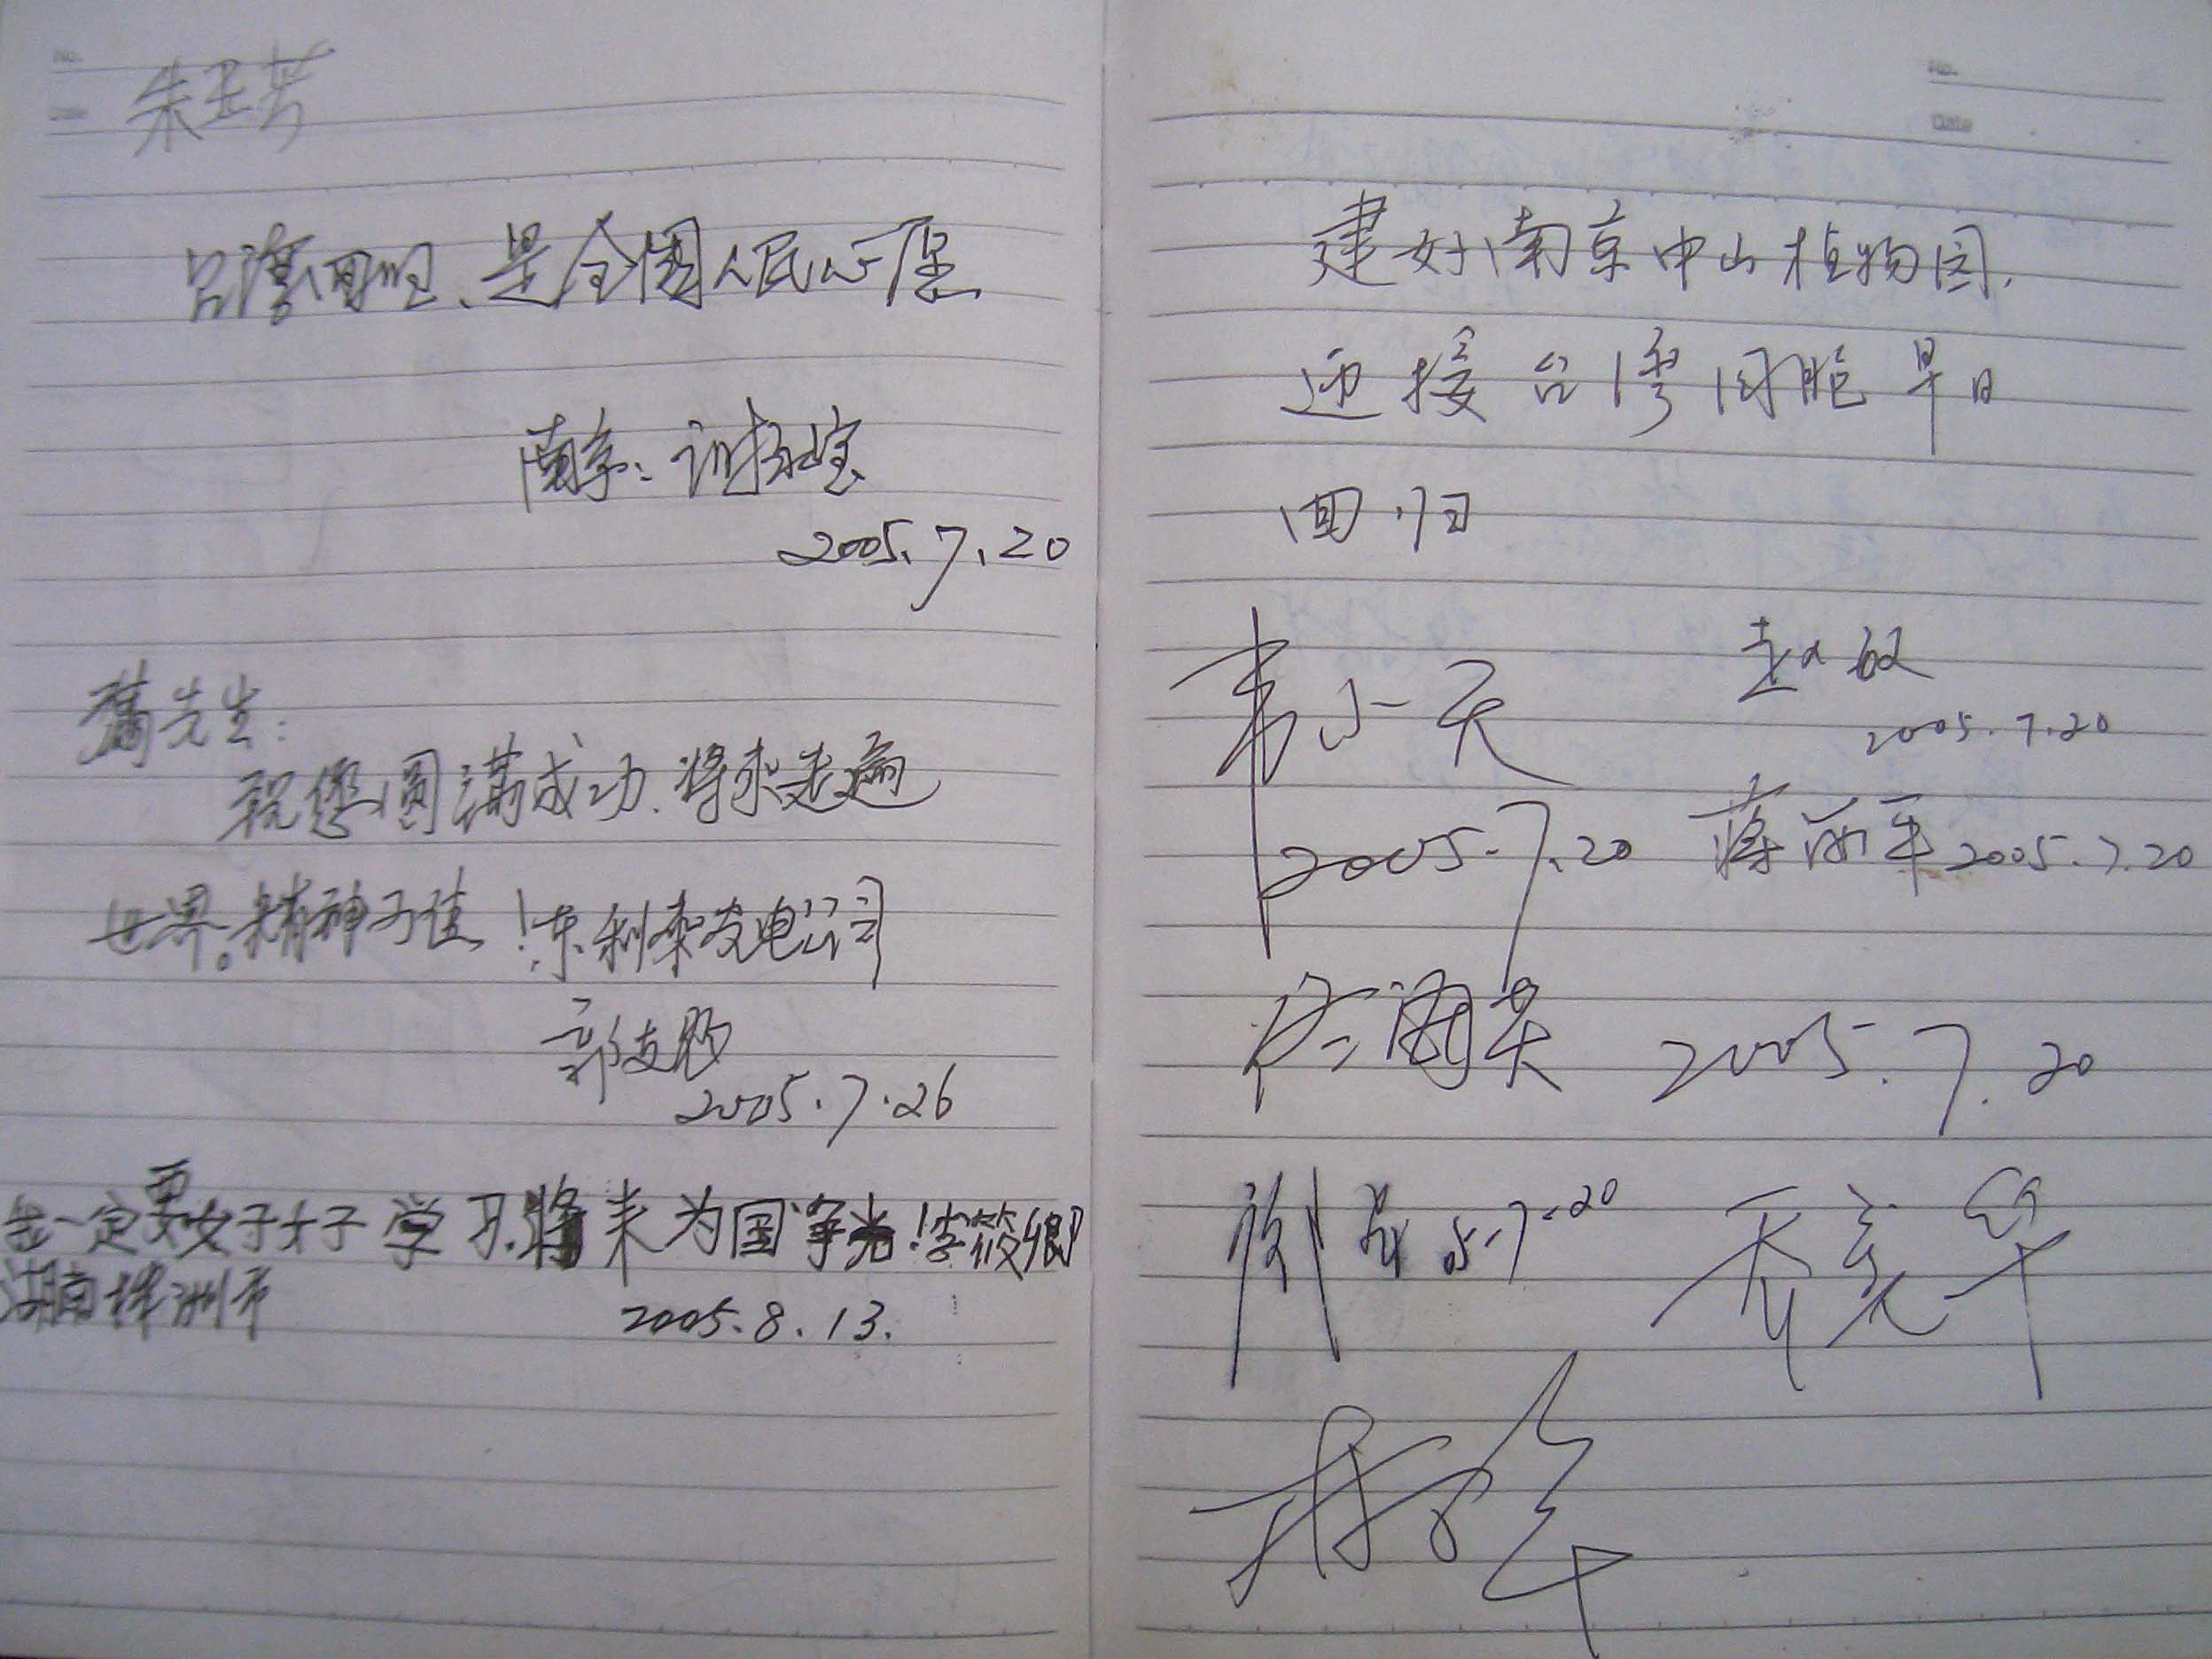 No.
Date
朱亚芳
台湾回归、是全国人民心愿
南京:
2005.7.20
先生:
祝您圆满成功.将来走遍
世界。精神可佳!东利来发电公司
郭
2005.7.26
一定要好好学习.将来为国争光!李筱卿
湖南株洲市
2005.8.13.
No.
Date
建好南京中山植物园.
迎接台湾同胞早日
回归
韦小天
2005.7.20
赵 敏
2005.7.20
蒋丽平 2005.7.20
2005.7.20
05-7-20
乔亮华